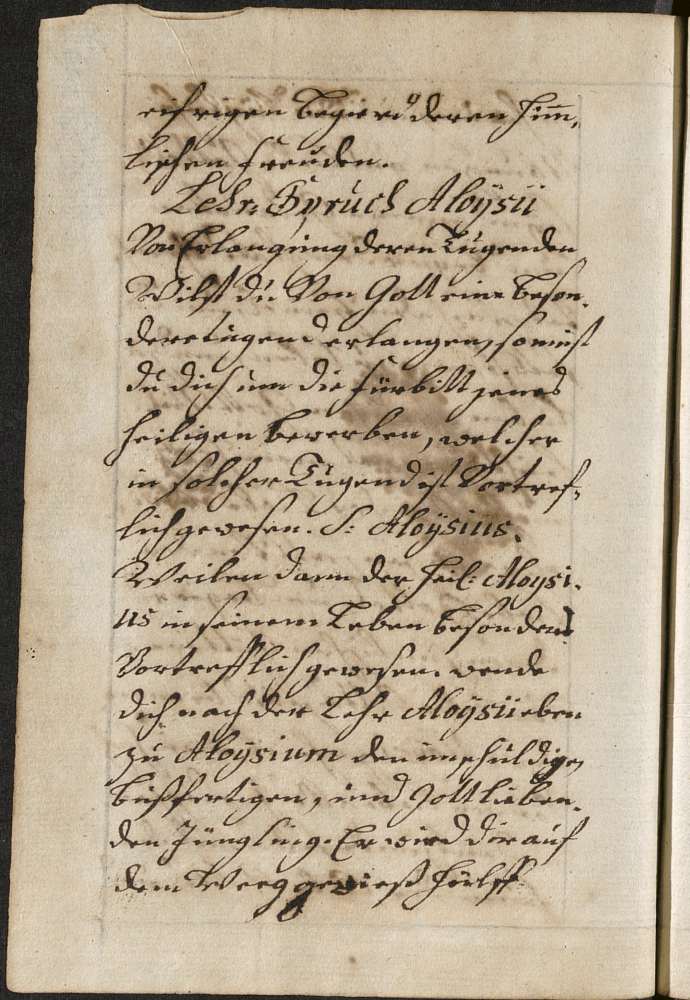 eifrigen begierd deren him̅,
lischen freuden.
Lehr, Spruch Aloÿsii
Von Erlangung deren Tugenden
Wilst du Von Gott eine beson,
dere tugend erlangen, so must
du dich um die fürbitt jenes
heiligen bewerben, welcher
in solcher Tugend ist Vortref,
lich gewesen. S: Aloÿsius.
Weilen dann der heil: Aloysi,
us in seinem Leben besonders
Vortrefflich gewesen. wende
dich nach der Lehr Aloÿsii eben
zu Aloÿsium den unschuldigen
bußfertigen, und Gott lieben,
den Jüngling. Er wird dir auf
dem Weeg gewieß hülff